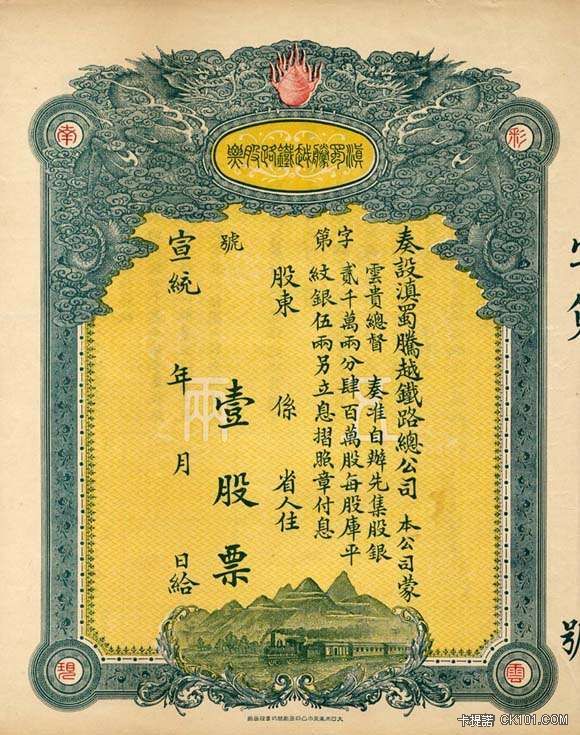 滇蜀騰越鐵路股票
彩
雲
南
現
奏設滇蜀騰越鐵路總公司 本公司蒙
雲貴總督 奏准自辦先集股銀
貳千萬兩分肆百萬股每股庫平
紋銀伍兩另立息摺照章付息
字第
號
股東 係 省人住
壹股票
宣統 年 月 日給
五兩
號
卡提諾 CK101.COM